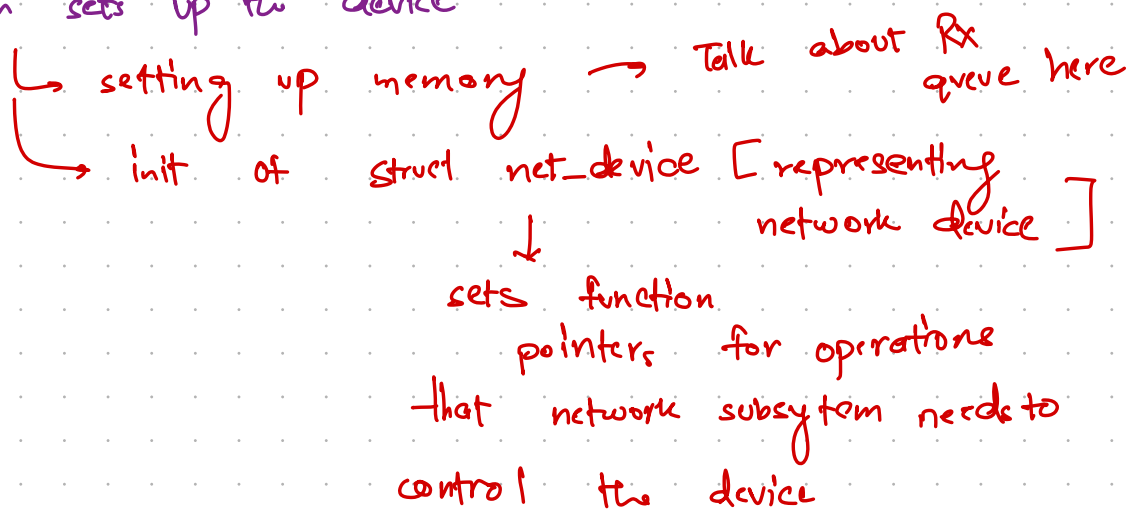 sets up the device
setting up memory → Talk about Rx
queue here
init of struct net_device [representing
network device]
↓
sets function
pointers for operations
that network subsytem needs to
control the device